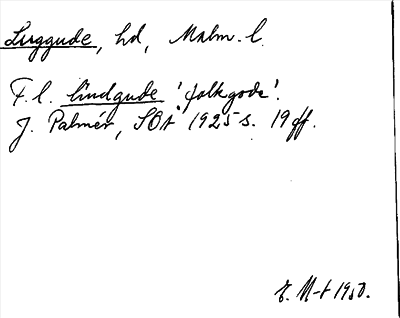 Luggude, hd, Malm. l.
F. l. liudgude 'folkgode'.
J. Palmér, SOÅ 1925 s. 19 ff.
E. M-t 1950.